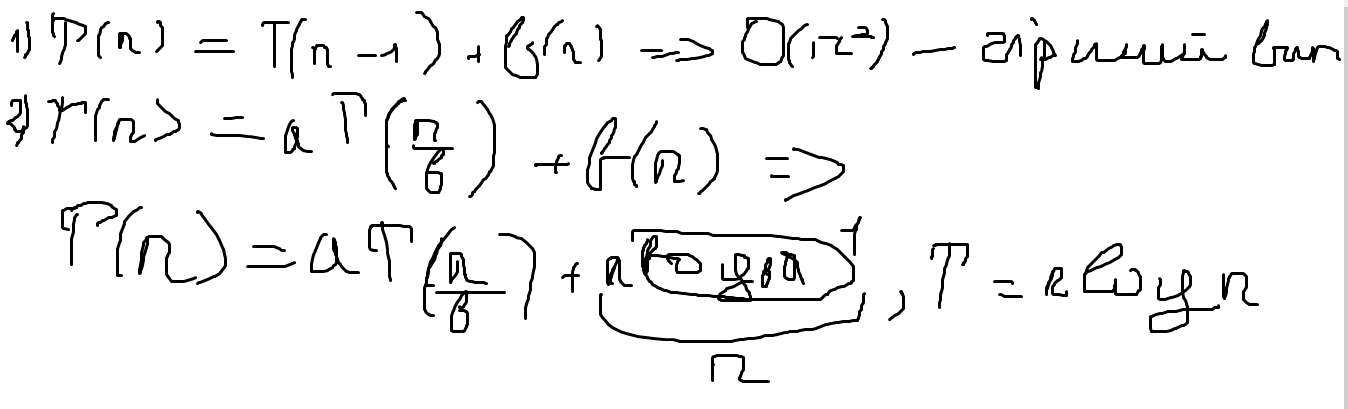 1) T(n) = T(n-1) + f(n) => O(n²) — гірший вип
2) T(n) = aT(n/b) + f(n) =>
T(n) = aT(n/b) + n^(log_b a), T = n log n
n